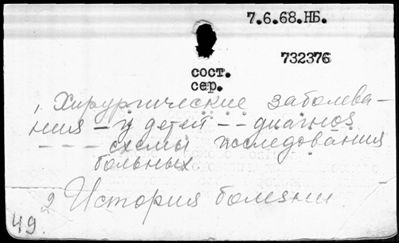 7.6.68.НБ.
732376
сост.
сер.
1. Хирургические заболева-
ния – у детей – – диагноз
– – – – схемы исследования
больных.
2 История болезни.
49.